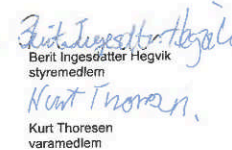 Berit Ingesdatter Hegvik
Berit Ingesdatter Hegvik
styremedlem
Kurt Thoresen
Kurt Thoresen
varamedlem